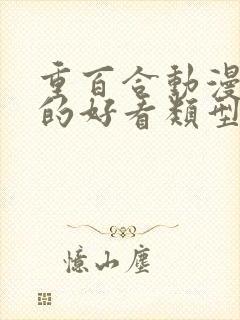 重百合動漫
的好看類型
憶山塵